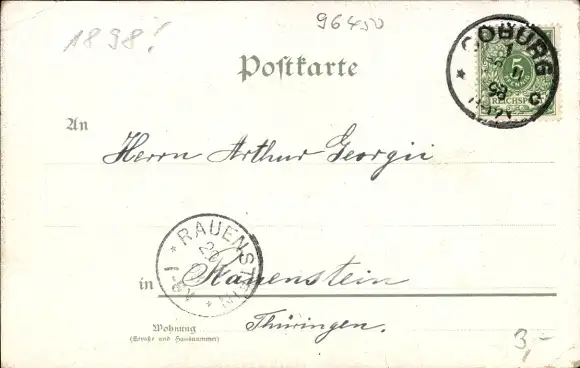 96450
1898!
COBURG
98
5
REICHSPOST
Postkarte
An
Herrn Arthur Georgii
RAUENSTEIN
in Rauenstein
Wohnung
(Straße und Hausnummer)
Thüringen.
3,-